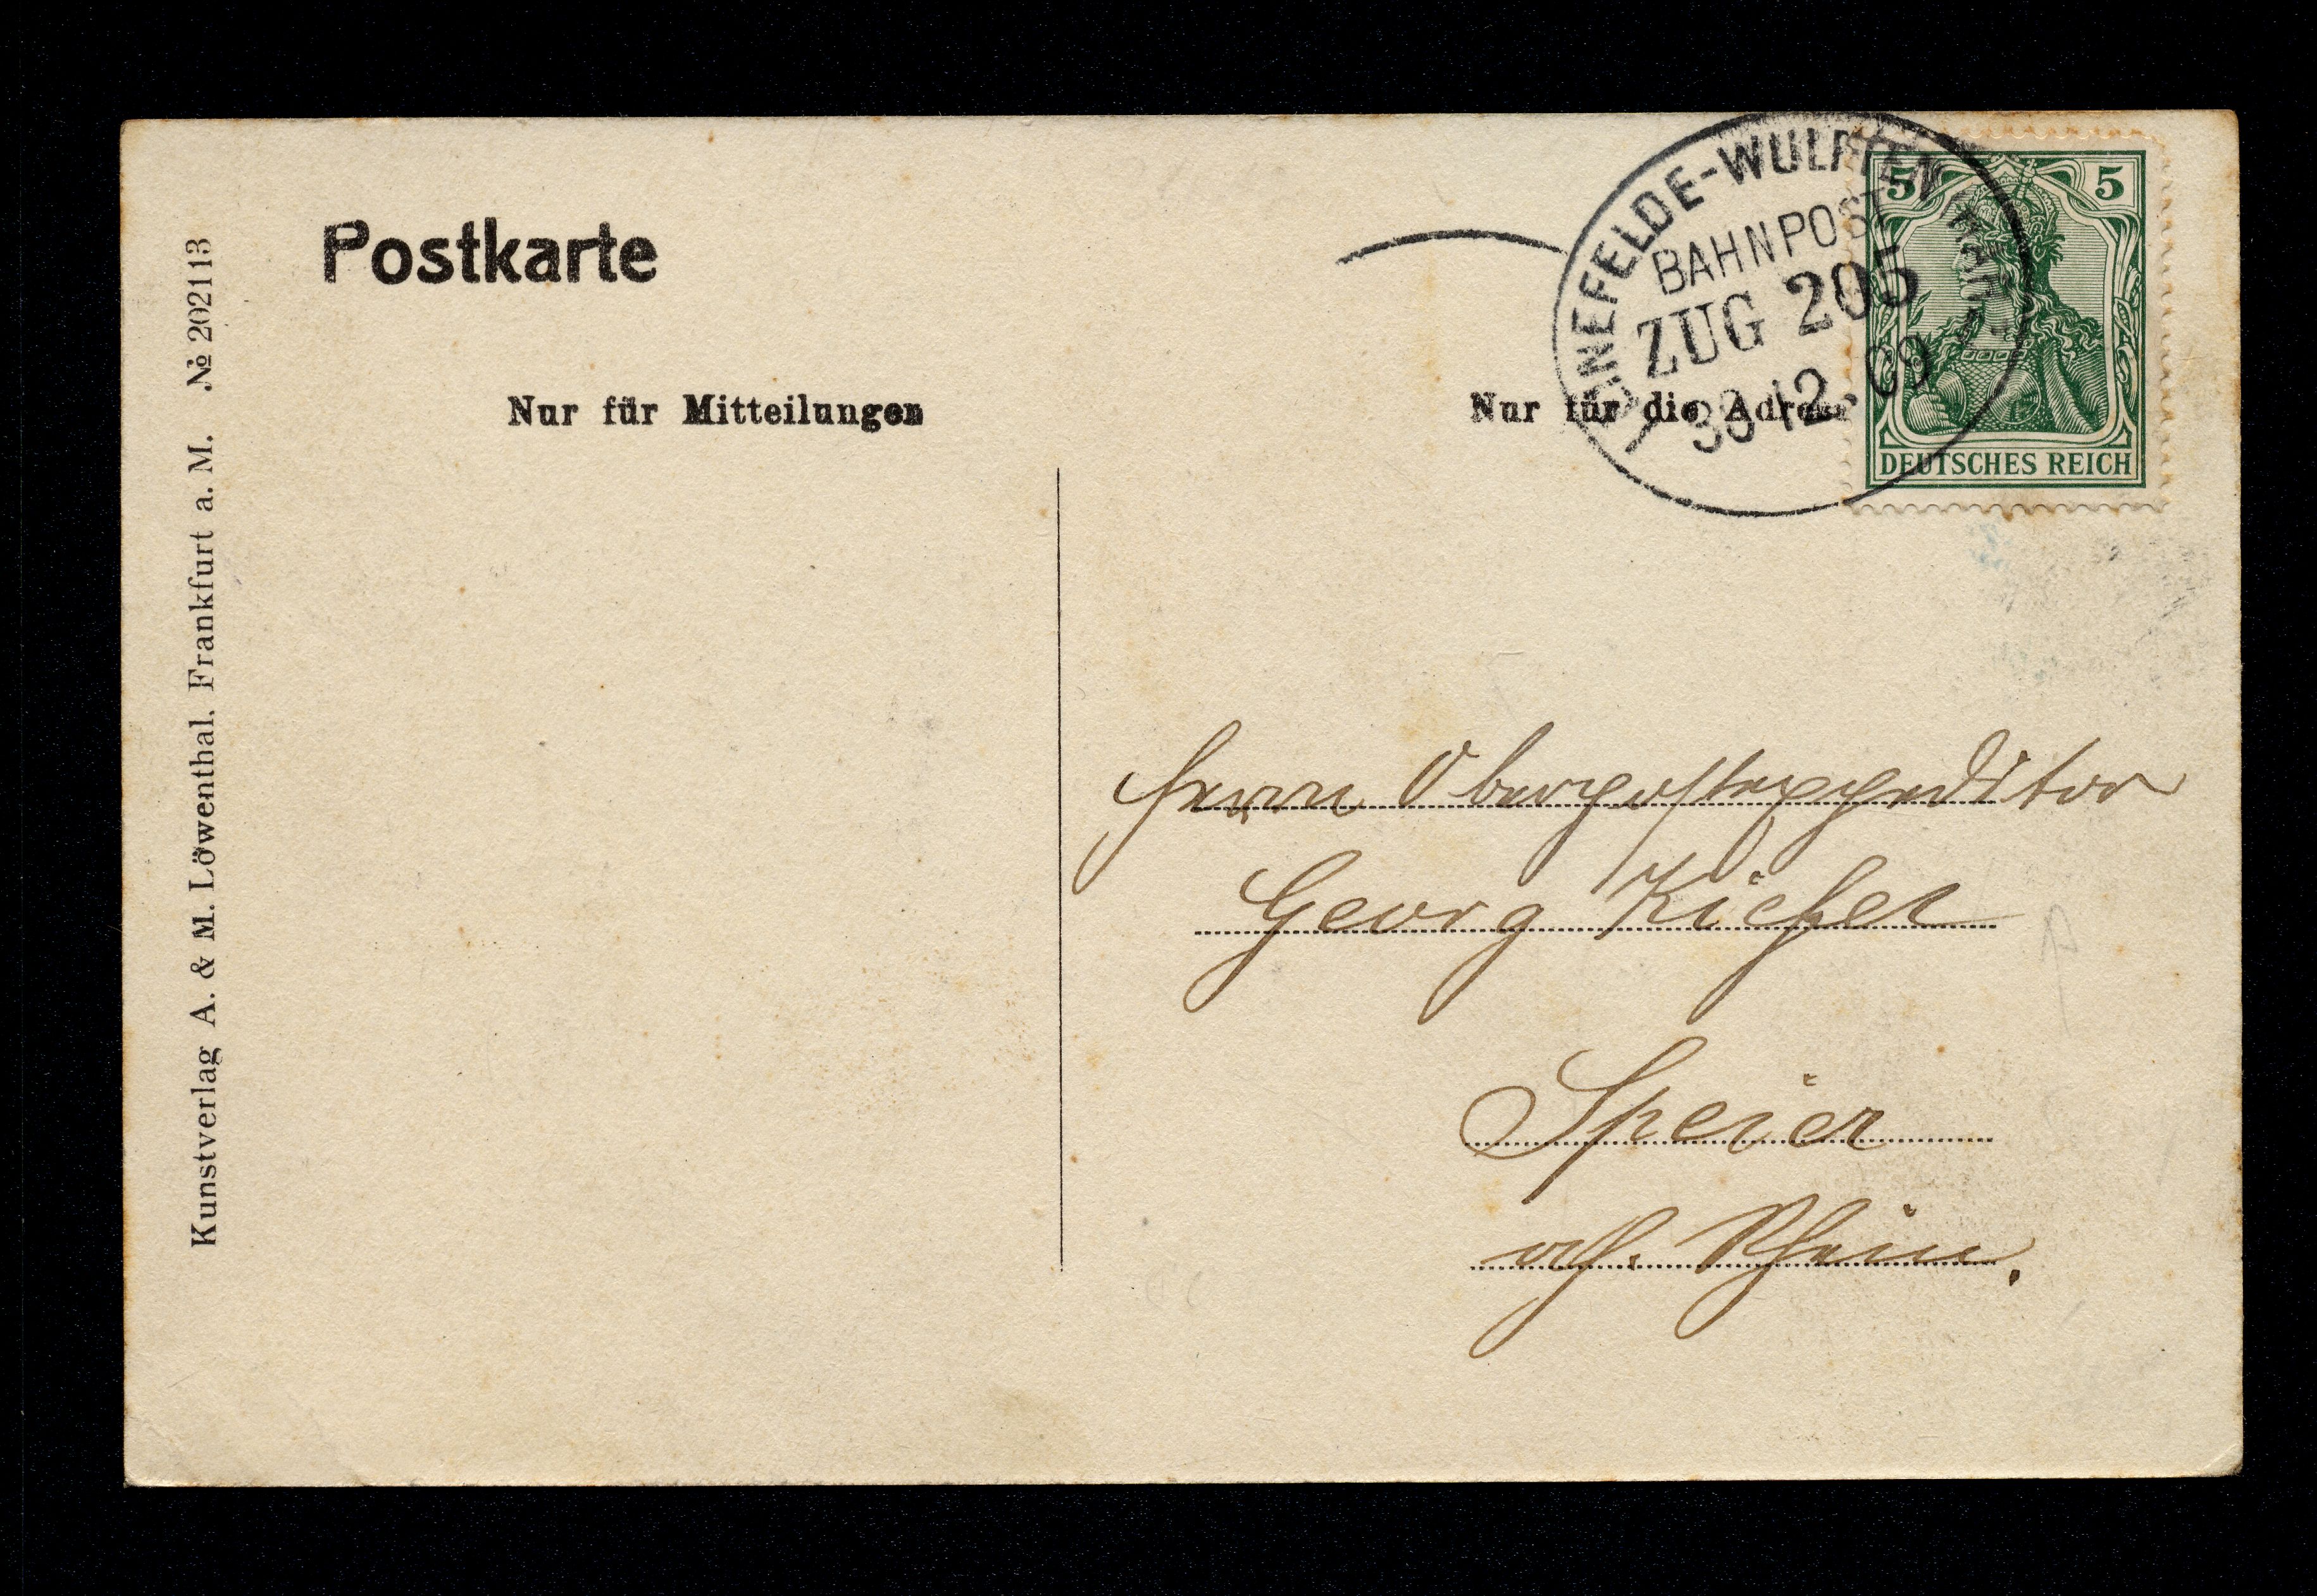 Kunstverlag A. & M. Löwenthal. Frankfurt a. M. № 202113
Postkarte
Nur für Mitteilungen
Nur für die Adresse
NEFELDE-WULFTEN
BAHNPOST
ZUG 205
30 12 09
5 5
DEUTSCHES REICH
Herrn Oberpostexpeditor
Georg Kiefer
Speier
Rhein.